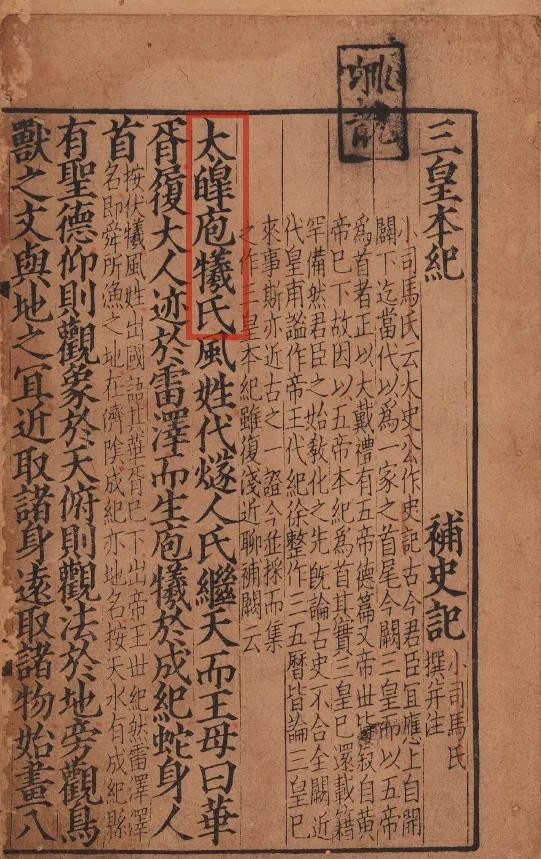 三皇本紀 補史記 小司馬氏
撰并注
小司馬氏云大史公作史記古今君臣宜應上自開
闢下迄當代以為一家之首尾今闕三皇而以五帝
為首者正以大戴禮有五帝德篇又帝世皆叙自黃
帝已下故因以五帝本紀為首其實三皇已還載籍
罕備然君臣之始敎化之先旣論古史不合全闕近
代皇甫謐作帝王代紀徐整作三五曆皆論三皇已
來事斯亦近古之一證今並採而集
之作三皇本紀雖復淺近聊補闕云
大皥庖犧氏風姓代燧人氏繼天而王母曰華
胥履大人迹於雷澤而生庖犧於成紀蛇身人
首 按伏犧風姓出國語其華胥已下出帝王世紀然雷澤澤
名即舜所漁之地在濟陰成紀亦地名按天水有成紀縣
有聖德仰則觀象於天俯則觀法於地旁觀鳥
獸之文與地之宜近取諸身遠取諸物始畫八